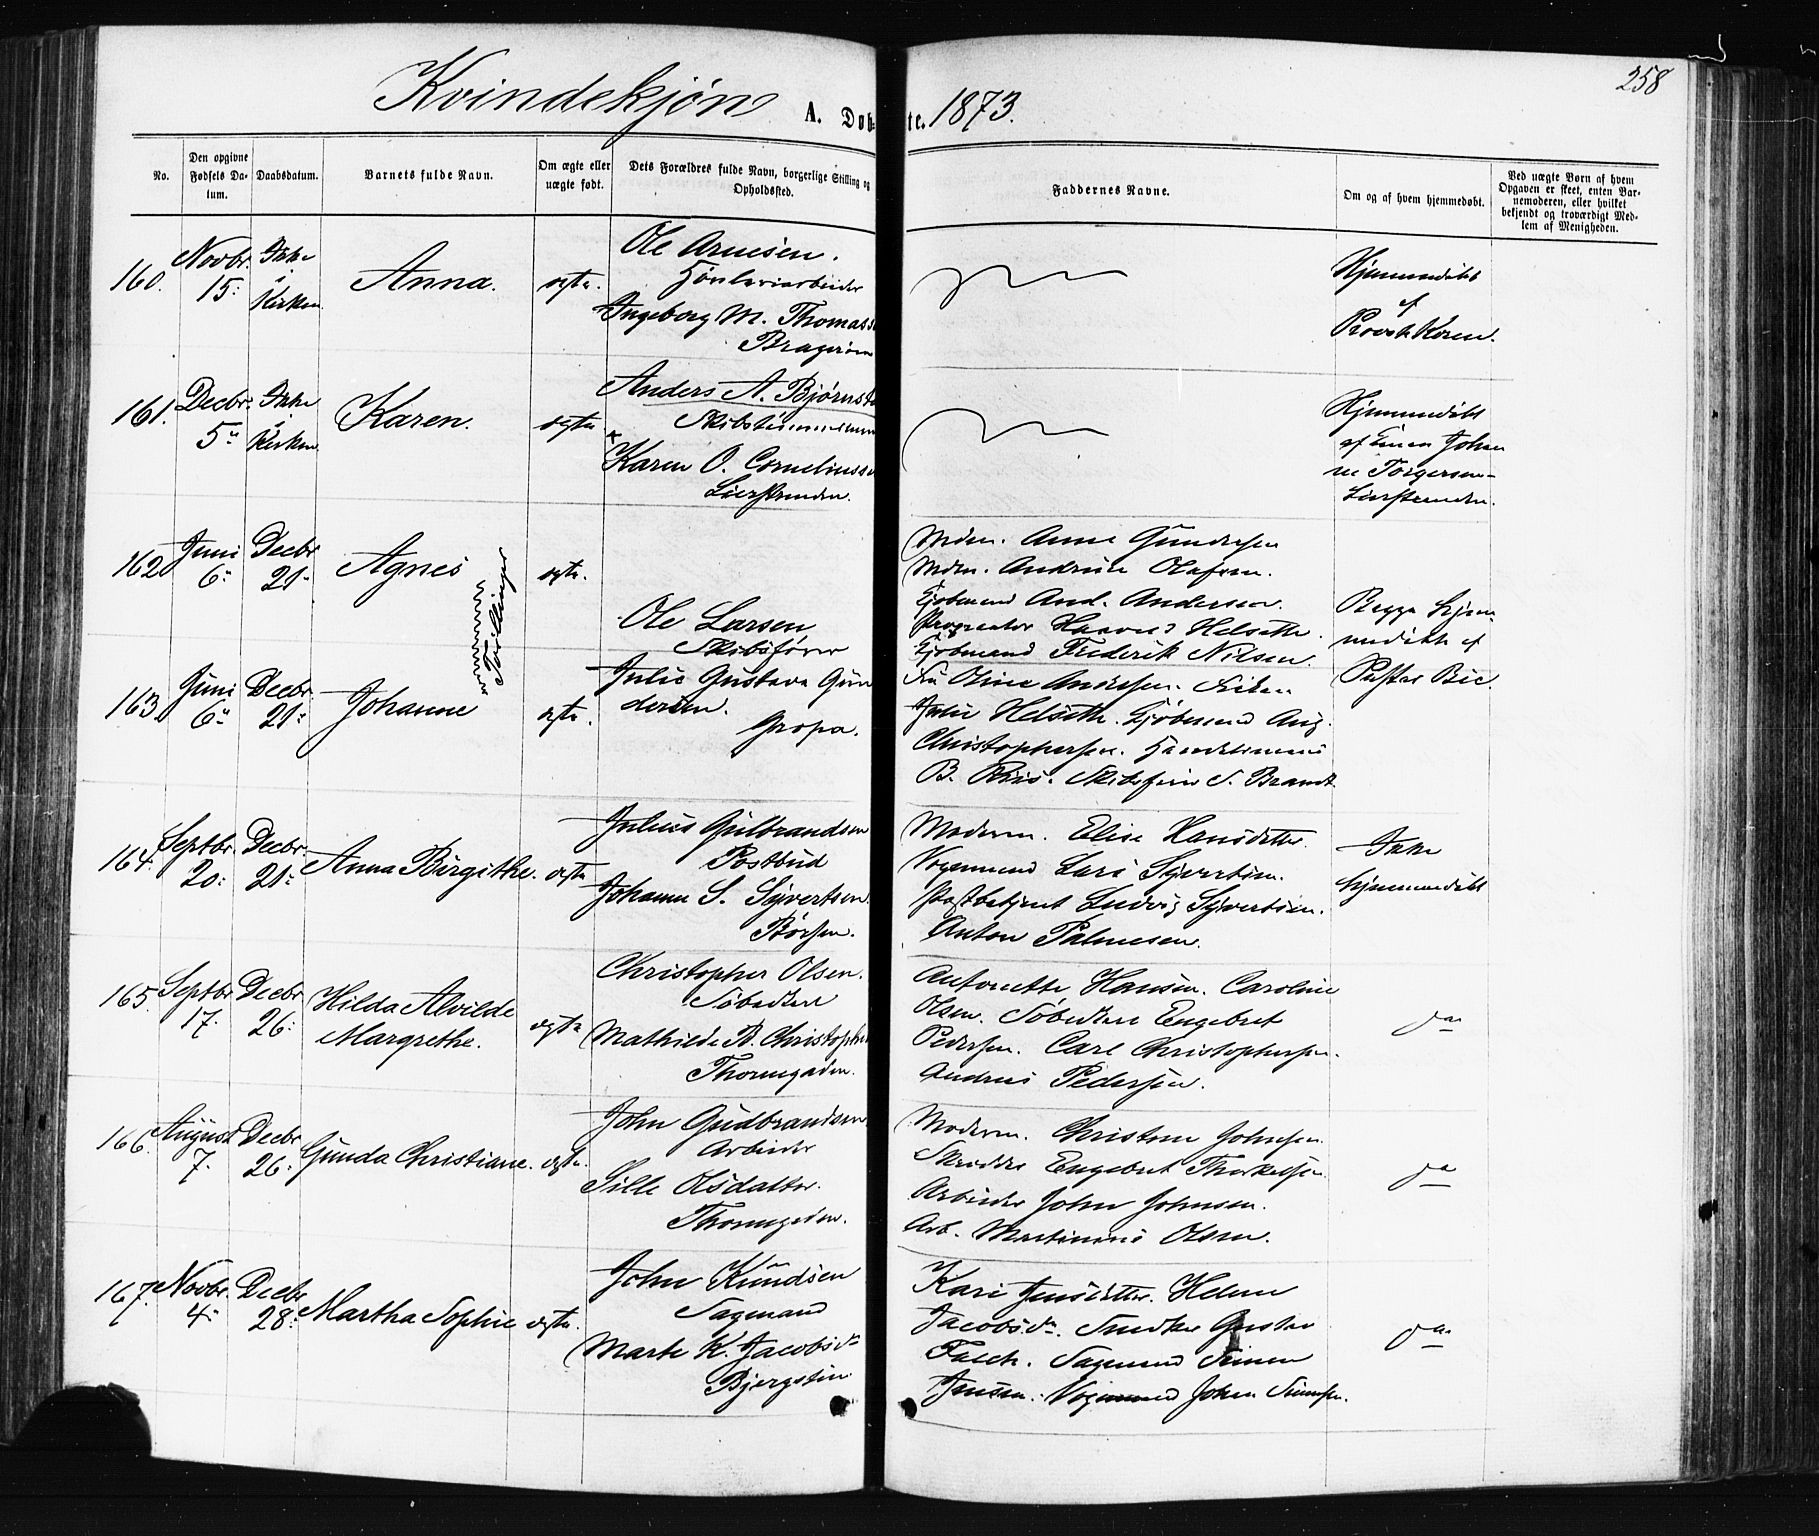 258
Kvindekjøn A. Døb-te. 1873.
No.
Den opgivne Fødsels Da-tum.
Daabsdatum.
Barnets fulde Navn.
Om ægte eller uægte født.
Dets Forældres fulde Navn, borgerlige Stilling og Opholdssted.
Faddernes Navne.
Om og af hvem hjemmedøbt.
Ved uægte Børn af hvem Opgaven er skeet, enten Bar-nemoderen, eller hvilket bekjendt og troværdigt Med-lem af Menigheden.
160.
Novbr. 15.
Ikke i Kirken
Anna.
egte.
Ole Arnesen.
Ingeborg M. Thomass
Bragerøen
Hjemmedøbt
af
Provst Koren.
161.
Decbr. 5
Ikke i Kirken
Karen.
egte
Anders A. Bjørnst
Skibstømmerm
Karen O. Corneliuss
Lierstranden.
Hjemmedøbt
af Johan
ne Torgersen
Lierstranden.
162
Juni 6
Decbr 21
Agnes
egte.
Tvillinger
163
Juni 6
Decbr. 21
Johanne
egte.
Ole Larsen
Skibsfører
Julie Gustava Gun
dersen.
Gropa.
Mdm. Anne Gundersen
Mdm. Andrine Olafsen.
Kjøbmand And. Andersen.
Helseth.
Kjøbmand Frederik Nilsen.
Fru Oline Andersen. Frøken
Julie Helseth. Kjøbmand Aug.
Christophersen.
B. Riis. Skibsfører S. Brandt
Begge hjem
medøbte af
Pastor Bie.
164.
Septbr. 20
Decbr. 21
Anna Birgithe.
egte
Julius Gulbrandsen
Postbud
Johanne S. Syvertsen
Børsen.
Moderen. Elise Hansdatter.
Vognmand Lars Syvertsen.
Postbetjent Ludvig Syvertsen.
Anton Palmesen.
Ikke
hjemmedøbt
165.
Septbr 17.
Decbr 26
Hilda Alvilde
Margrethe.
egte
Christopher Olsen.
Mathilde B. Christoph
Thornegaden.
Antonette Hansen. Caroline
Olsen. Engebret
Pedersen. Carl Christophersen.
Andreas Pedersen.
do
166.
August 7.
Decbr 26
Gunda Christiane.
egte.
John Gudbrandsen
Arbeider
Sille Olsdatter.
Thornegaden.
Moderen. Johnsen.
Skrædder Engebret Thorkelsen
Arbeider John Johnsen.
Arb. Martinius Olsen.
do
167.
Novbr. 4
Decbr 28
Martha Sophie
egte.
John Knudsen
Sagmand
Marte K. Jacobsd
Bjergsten
Kari Jensdatter. Helene
Jacobsd. Snedker Gustav
Falch. Sagmand Simen
Jensen. Vognmand Johan Simensen.
do